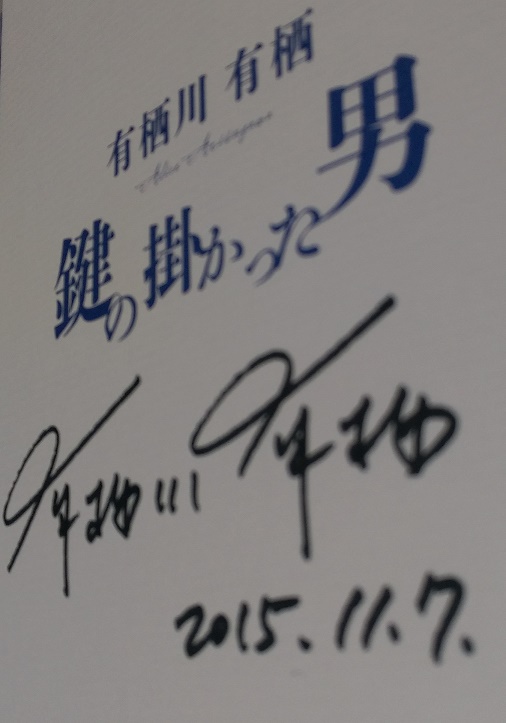 有栖川 有栖
Alice Arisugawa
鍵の掛かった男
有栖川 有栖
2015.11.7.